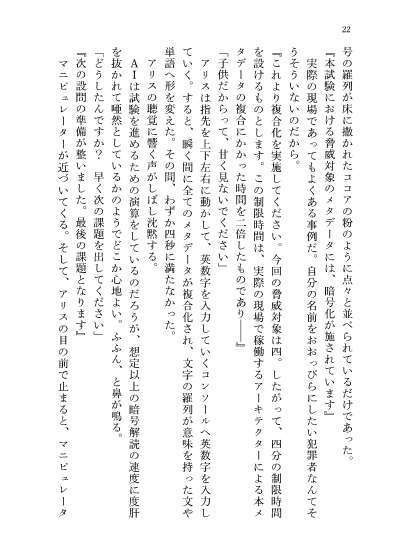 22
号の羅列が床に撒かれたココアの粉のように点々と並べられているだけであった。
『本試験における脅威対象のメタデータには、暗号化が施されています』
実際の現場であってもよくある事例だ。自分の名前をおおっぴらにしたい犯罪者なんてそ
うそういないのだから。
『これより複合化を実施してください。今回の脅威対象は四。したがって、四分の制限時間
を設けるものとします。この制限時間は、実際の現場で稼働するアーキテクターによる本メ
タデータの複合にかかった時間を二倍したものであり――』
「子供だからって、甘く見ないでください」
アリスは指先を上下左右に動かして、英数字を入力していくコンソールへ英数字を入力し
ていく。すると、瞬く間に全てのメタデータが複合化され、文字の羅列が意味を持った文や
単語へ形を変えた。その間、わずか四秒に満たなかった。
アリスの聴覚に響く声がしばし沈黙する。
ＡＩは試験を進めるための演算をしているのだろうが、想定以上の暗号解読の速度に度肝
を抜かれて唖然としているかのようでどこか心地よい。ふふん、と鼻が鳴る。
「どうしたんですか？　早く次の課題を出してください」
『次の設問の準備が整いました。最後の課題となります』
マニピュレーターが近づいてくる。そして、アリスの目の前で止まると、マニピュレータ